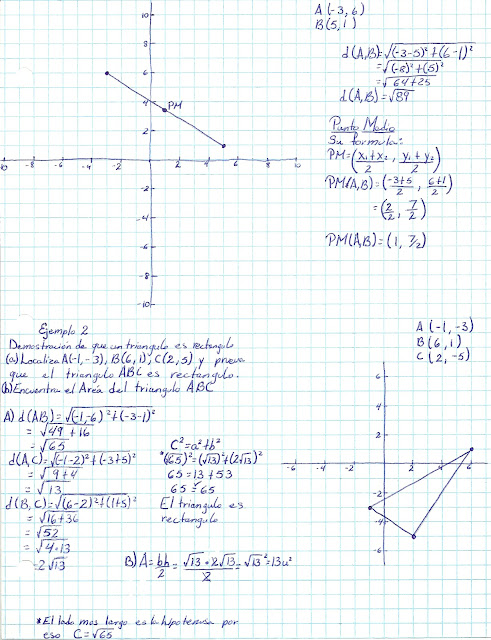 A (-3, 6)
B (5, 1)
d(A,B)=√(-3-5)²+(6-1)²
=√(-8)²+(5)²
=√64+25
d(A,B)=√89
Punto Medio
Su formula:
PM=(x₁+x₂/2, y₁+y₂/2)
PM(A,B)=(-3+5/2, 6+1/2)
=(2/2, 7/2)
PM(A,B)=(1, 7/2)
10
8
6
4
2
PM
-10 -8 -6 -4 -2 2 4 6 8 10
-2
-4
-6
-8
-10
Ejemplo 2
Demostración de que un triangulo es rectangulo
(a) Localiza A(-1,-3), B(6,1), C(2,5) y prueva
que el triangulo ABC es rectangulo.
(b) Encuentra el Area del triangulo ABC
A (-1, -3)
B (6, 1)
C (2, -5)
A) d(AB)=√(-1-6)²+(-3-1)²
=√49+16
=√65
d(A,C)=√(-1-2)²+(-3+5)²
=√9+4
=√13
d(B,C)=√(6-2)²+(1+5)²
=√16+36
=√52
=√4·13
=2√13
C²=a²+b²
*(√65)²=(√13)²+(2√13)²
65=13+53
65=65
El triangulo es
rectangulo
B) A=bh/2=√13·2√13/2=√13²=13u²
6
4
2
-6 -4 -2 2 4 6
-2
-4
-6
*El lado mas largo es la hipotenusa por
eso C=√65